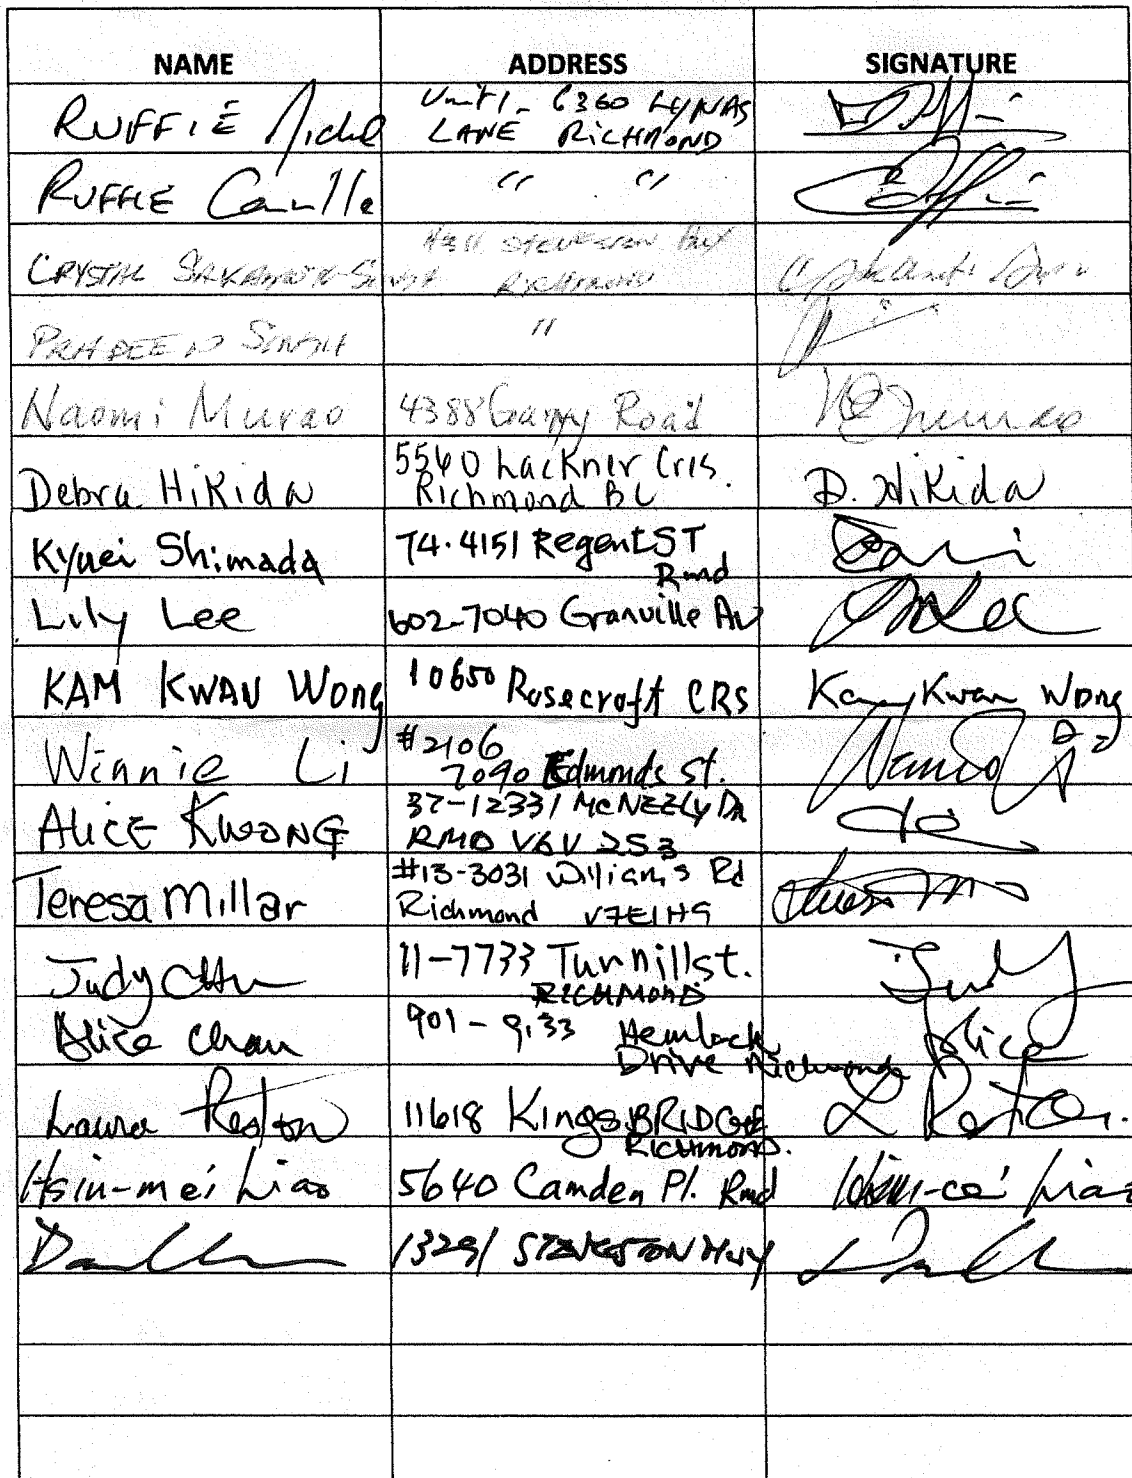 NAME ADDRESS SIGNATURE
RUFFIÉ Michel Unit 1- 6360 LYNAS
LANE RICHMOND
RUFFIE Camille " "
CRYSTAL STEVESTON HWY
RICHMOND
PRADEEP SINGH "
Naomi Murao 4388 Garry Road
Debra Hikida 5540 Lackner Cres. D. Hikida
Richmond BC
Kyuei Shimada 74-4151 Regent ST
Rmd
Lily Lee 602-7040 Granville Av
KAM KWAN Wong 10650 Rosecroft CRS Kam Kwan Wong
Winnie Li #2106
7090 Edmonds St.
ALICE KWONG 37-12331 McNEELY DR
RMD V6V 2S3
Teresa Millar #13-3031 Williams Rd
Richmond V7E1H9
Judy Chu 11-7733 Turnill st. Judy
RICHMOND
Alice Chan 901 - 9133 Hemlock Alice
Drive Richmond
Laura Reston 11618 KingsBRIDGE L Reston
RICHMOND.
Hsin-mei Liao 5640 Camden Pl. Rmd Hsin-mei Liao
13291 STEVESTON HWY